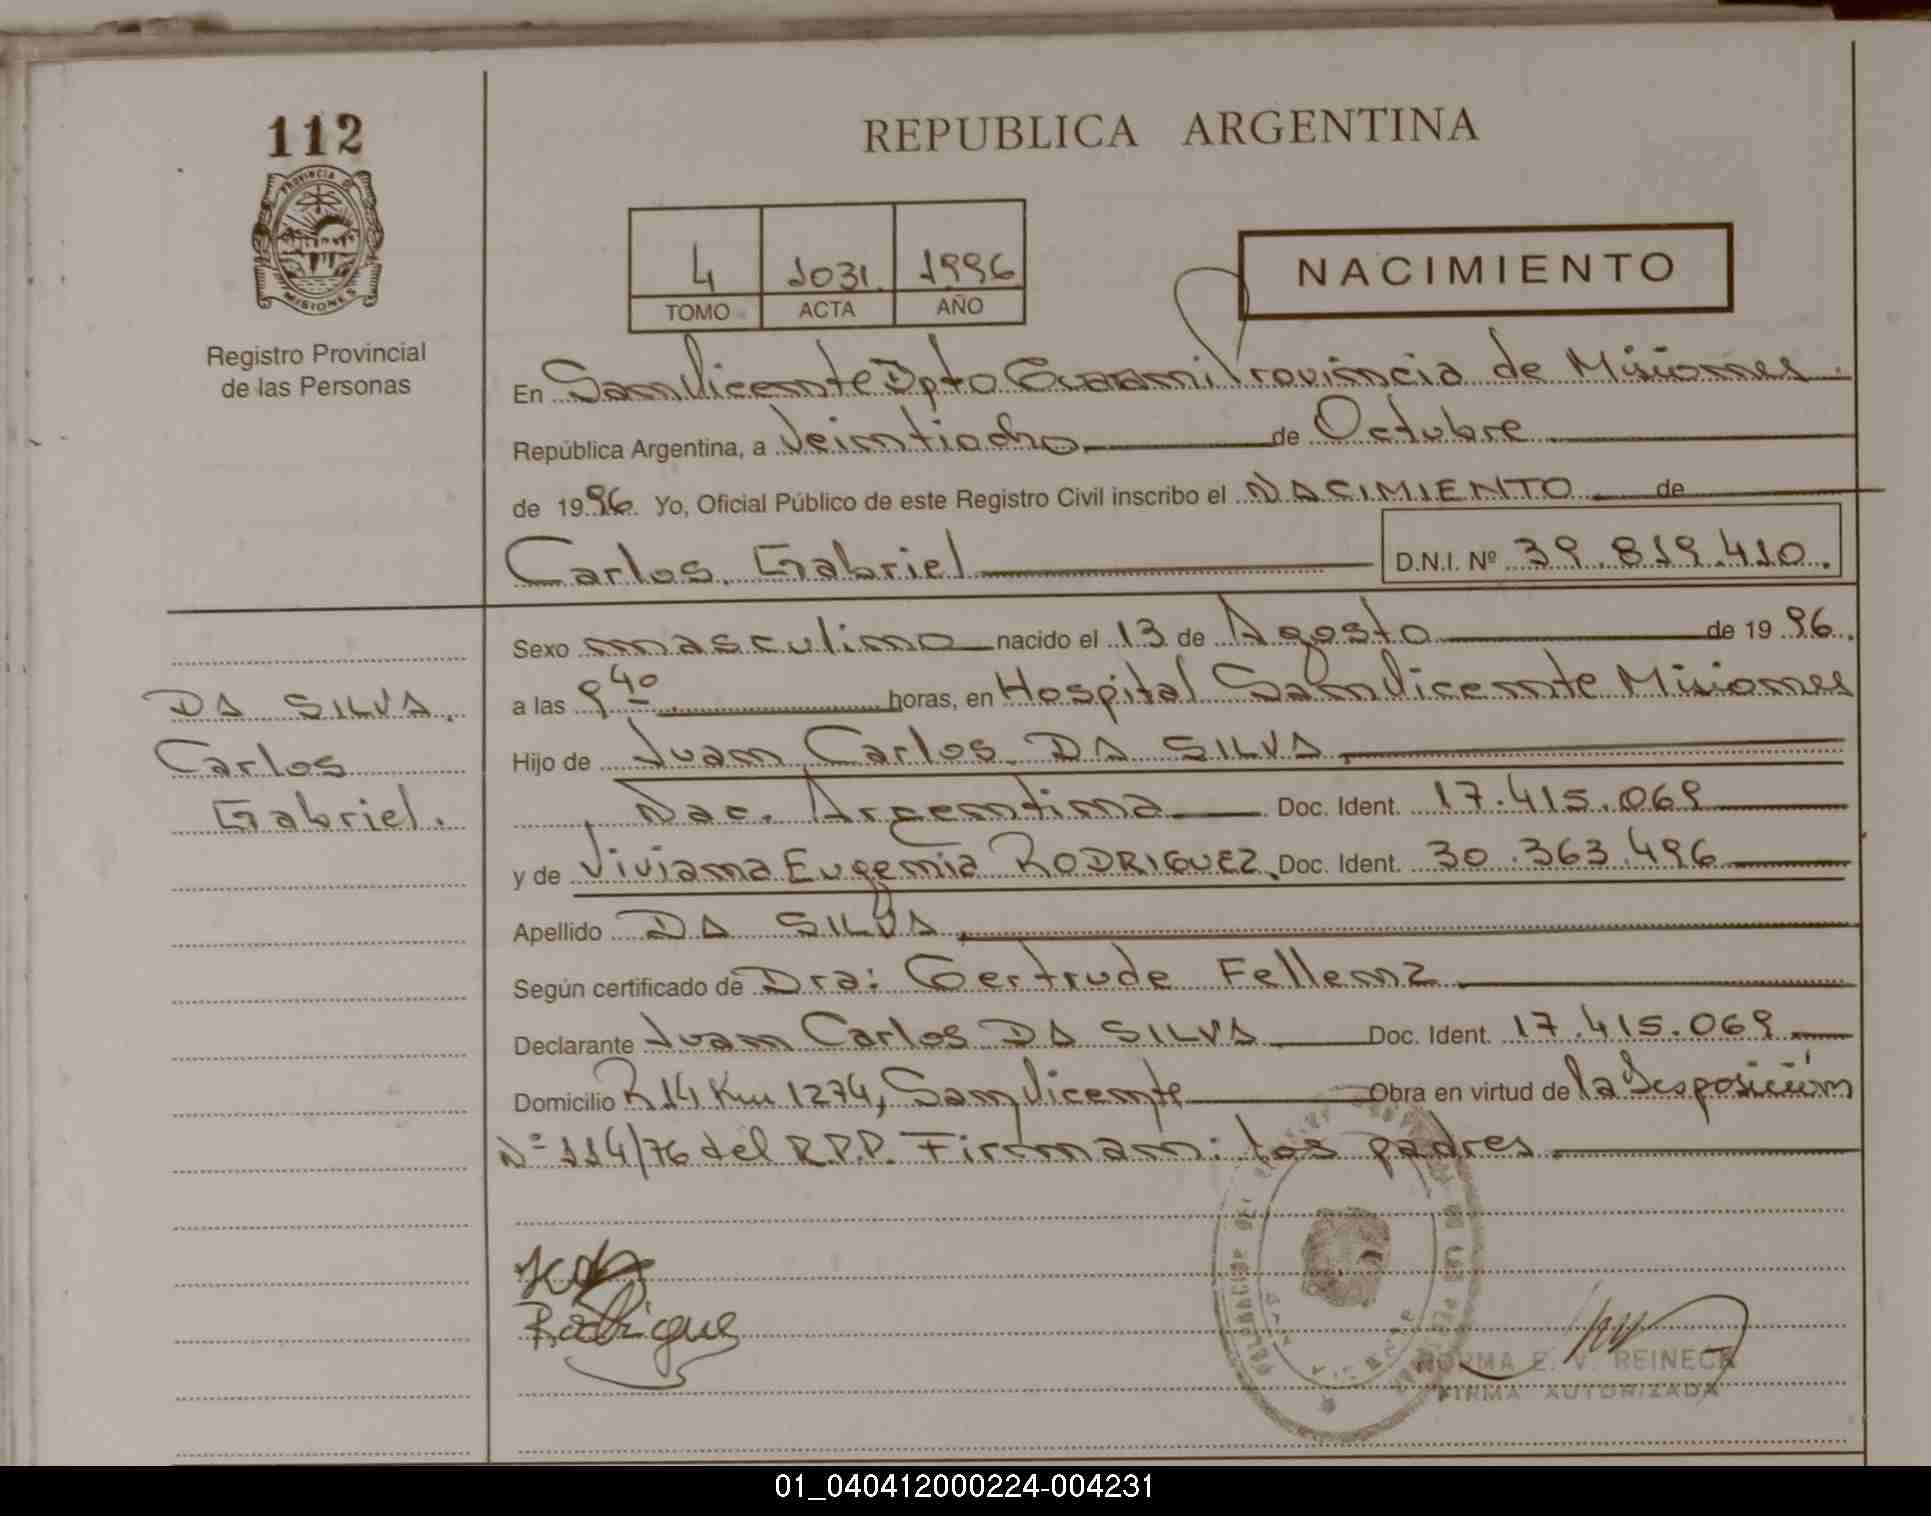 112
PROVINCIA DE
MISIONES
Registro Provincial
de las Personas
REPUBLICA ARGENTINA
4 1031. 1996
TOMO ACTA AÑO
NACIMIENTO
En San Vicente Dpto Guaraní Provincia de Misiones.
República Argentina, a Veintiocho de Octubre
de 1996. Yo, Oficial Público de este Registro Civil inscribo el NACIMIENTO de
Carlos Gabriel D.N.I. Nº 39.819.410.
DA SILVA.
Carlos
Gabriel.
Sexo masculino nacido el 13 de Agosto de 1996.
a las 9 40 horas, en Hospital San Vicente Misiones
Hijo de Juan Carlos DA SILVA
Nac. Argentina Doc. Ident. 17.415.069
y de Viviana Eugenia RODRIGUEZ. Doc. Ident. 30.363.496
Apellido DA SILVA
Según certificado de Dra: Gertrude Fellenz
Declarante Juan Carlos DA SILVA Doc. Ident. 17.415.069
Domicilio R 14 Km 1274, San Vicente Obra en virtud de la Disposición
Nº 114/76 del R.P.P. Firman: los padres
NORMA E. V. REINECK
FIRMA AUTORIZADA
01_040412000224-004231